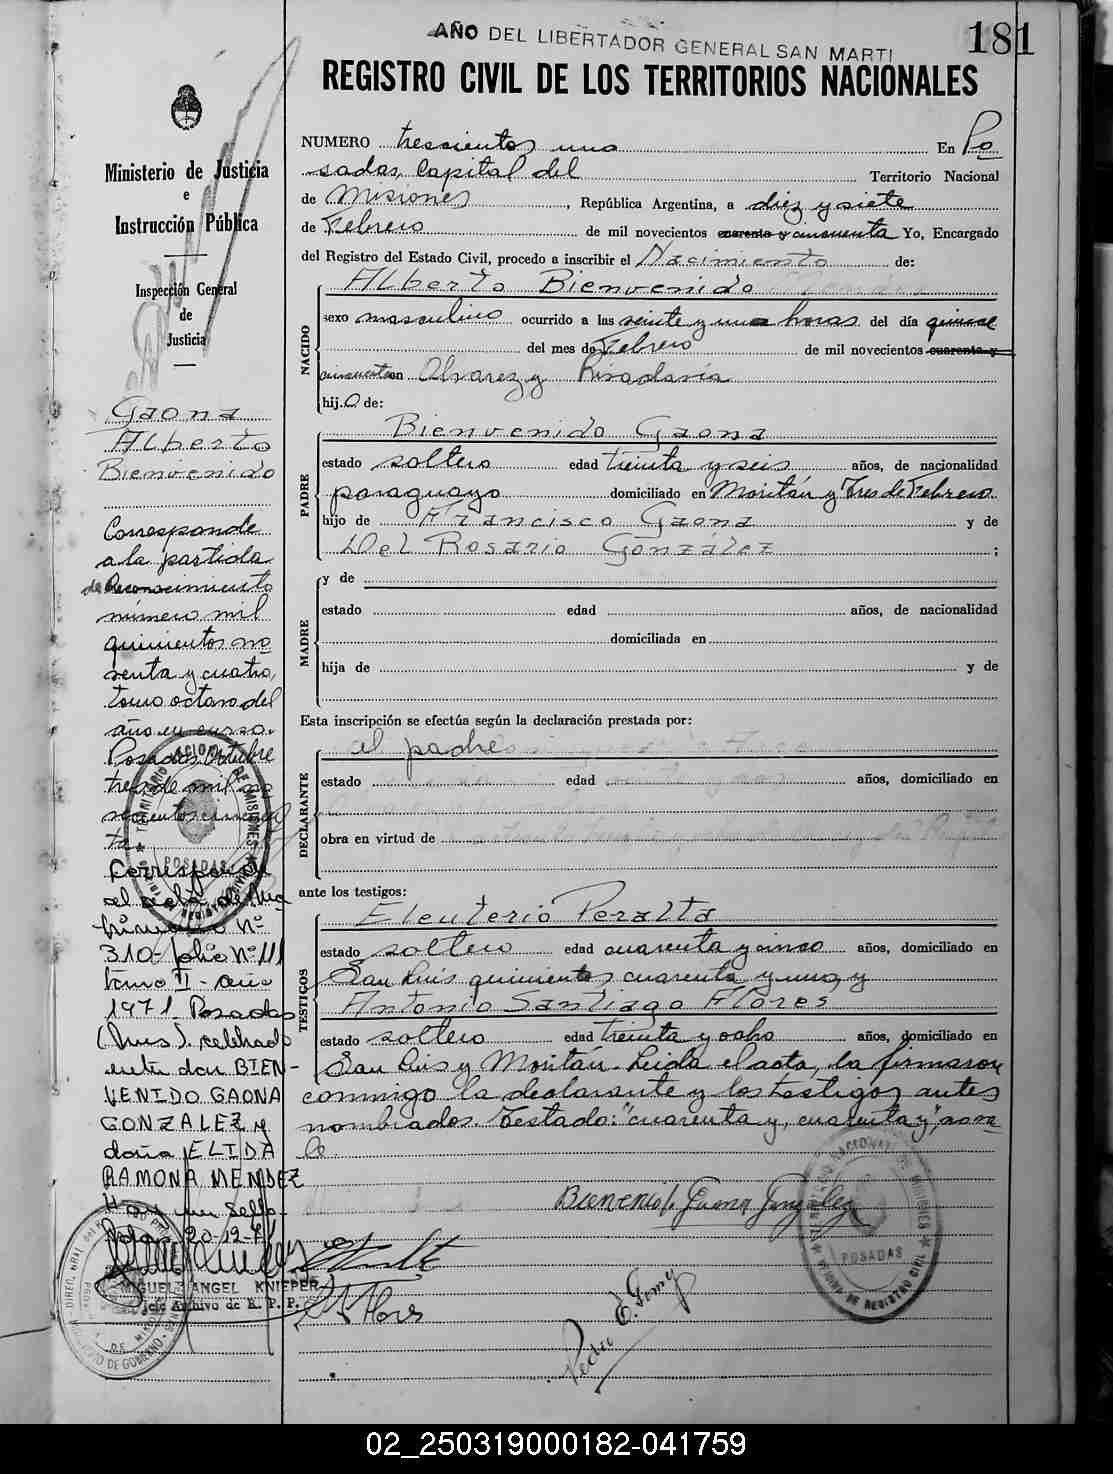 AÑO DEL LIBERTADOR GENERAL SAN MARTI
181
REGISTRO CIVIL DE LOS TERRITORIOS NACIONALES
Ministerio de Justicia
e
Instrucción Pública
Inspección General
de
Justicia
Gaona
Alberto
Bienvenido
Corresponde
a la partida
de Reconocimiento
número mil
quinientos no
venta y cuatro,
tomo octavo del
año en curso.
Posadas, Octubre
tres de mil no
vecientos cincuen
ta
Corresponde
al acta de
Nº
310- folio Nº 111
tomo II - año
1971. Posadas
celebrado
entre don BIEN-
VENIDO GAONA
GONZALEZ y
doña ELIDA
RAMONA MENDEZ
Hay un sello.
20-12-71
MIGUEL ANGEL KNIEPER
Jefe Archivo de R. P. P.
NUMERO trescientos uno En Po
sadas, Capital del Territorio Nacional
de Misiones, República Argentina, a diez y siete
de Febrero de mil novecientos cuarenta y cincuenta Yo, Encargado
del Registro del Estado Civil, procedo a inscribir el Nacimiento de:
Alberto Bienvenido
NACIDO
sexo masculino ocurrido a las veinte y una horas del día quince
del mes de Febrero de mil novecientos cuarenta y
cincuenta en Alvarez y Rivadavia
hij.o de:
PADRE
Bienvenido Gaona
estado soltero edad treinta y seis años, de nacionalidad
paraguayo domiciliado en Moritán y Tres de Febrero
hijo de Francisco Gaona y de
Del Rosario González ;
MADRE
y de
estado edad años, de nacionalidad
domiciliada en
hija de y de
Esta inscripción se efectúa según la declaración prestada por:
DECLARANTE
el padre
estado edad años, domiciliado en
obra en virtud de
ante los testigos:
TESTIGOS
Eleuterio Peralta
estado soltero edad cuarenta y cinco años, domiciliado en
San Luis quinientos cuarenta y uno y
Antonio Santiago Flores
estado soltero edad treinta y ocho años, domiciliado en
San Luis y Moritán. Leida el acta, la firmaron
conmigo la declarante y los testigos antes
nombrados. Testado: "cuarenta y, cuarenta y", no va
le
Bienvenido Gaona González
POSADAS
02_250319000182-041759